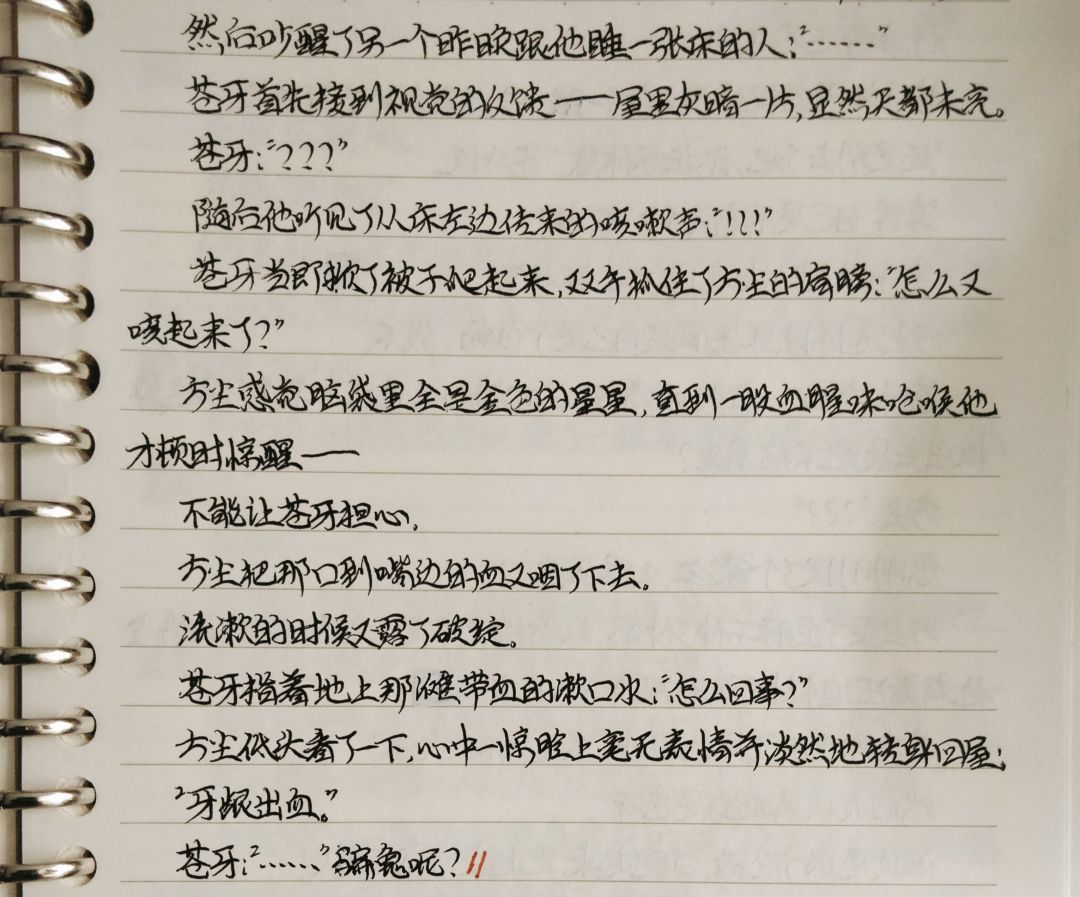 然后吵醒了另一个昨晚跟他睡一张床的人：“……”
苍牙首先接到视觉的反馈——屋里灰暗一片，显然天都未亮。
苍牙：“？？？”
随后他听见了从床左边传来的咳嗽声：“！！！”
苍牙当即掀了被子爬起来，双手抓住了方尘的肩膀：“怎么又
咳起来了？”
方尘感觉脑袋里全是金色的星星，直到一股血腥味呛喉他
才顿时惊醒——
不能让苍牙担心。
方尘把那口到嘴边的血又咽了下去。
洗漱的时候又露了破绽。
苍牙指着地上那滩带血的漱口水：“怎么回事？”
方尘低头看了一下，心中一惊脸上毫无表情并淡然地转身回屋：
“牙龈出血。”
苍牙：“……”骗鬼呢？